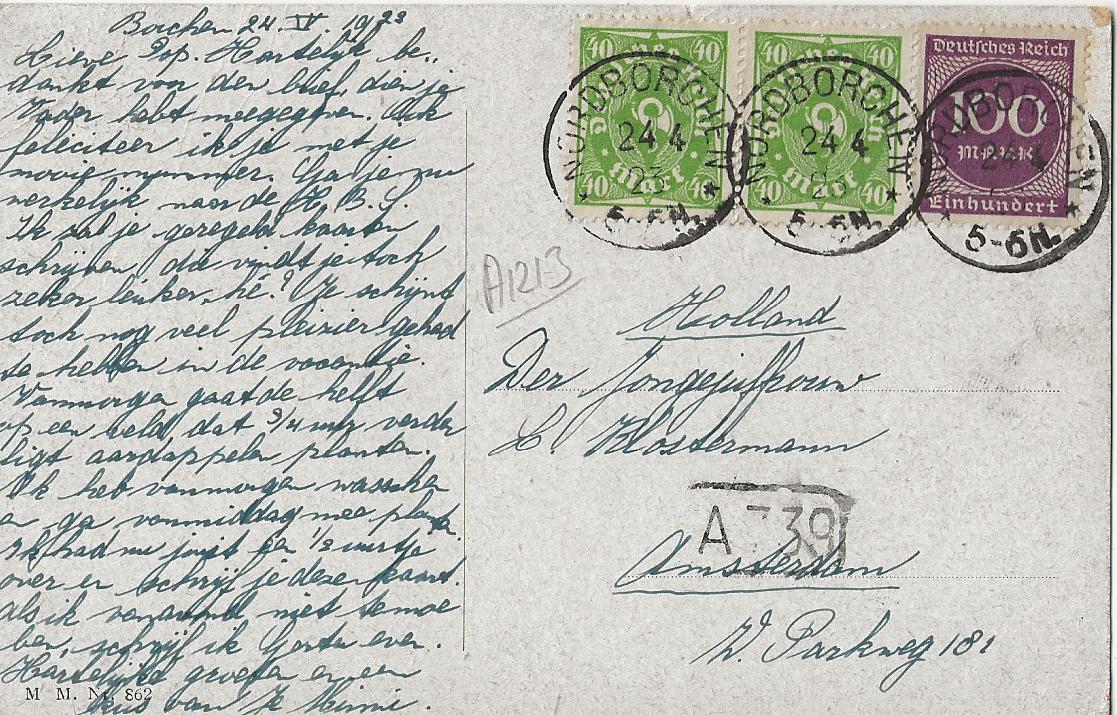 Borchen 24 IV. 1923
Lieve Pop. Hartelijk be-
dankt voor den brief, dien je
Vader hebt meegegeven. Ook
feliciteer ik je met je
mooie nummer. Ga je nu
werkelijk naar de H.B.S.
Ik zal je geregeld kaarten
schrijven, dat vindt je toch
zeker leuker, hé? Je schijnt
toch nog veel pleizier gehad
te hebben in de vacantie.
Vanmorgen gaat de helft
op een veld dat 3/4 uur verder
ligt aardappelen planten.
Ik heb vanmorgen wasschen
en ga vanmiddag mee planten
Ik had nu juist en 1/2 uurtje
over en schrijf je deze kaart.
als ik vanavond niet te moe
ben, schrijf ik even.
Hartelijke groeten en een
kus van je Mimi.
M. M. Nr. 862
40 40
Mark
40 40
NORDBORCHEN
24 4
23
5-6N.
40 40
Mark
40 40
NORDBORCHEN
24 4
23
5-6N.
Deutsches Reich
100
MARK
Einhundert
NORDBORCHEN
24 4
5-6N.
A1213
Holland
Der Jongejuffrouw
C. Klostermann
A 739
Amsterdam
W. Parkweg 181